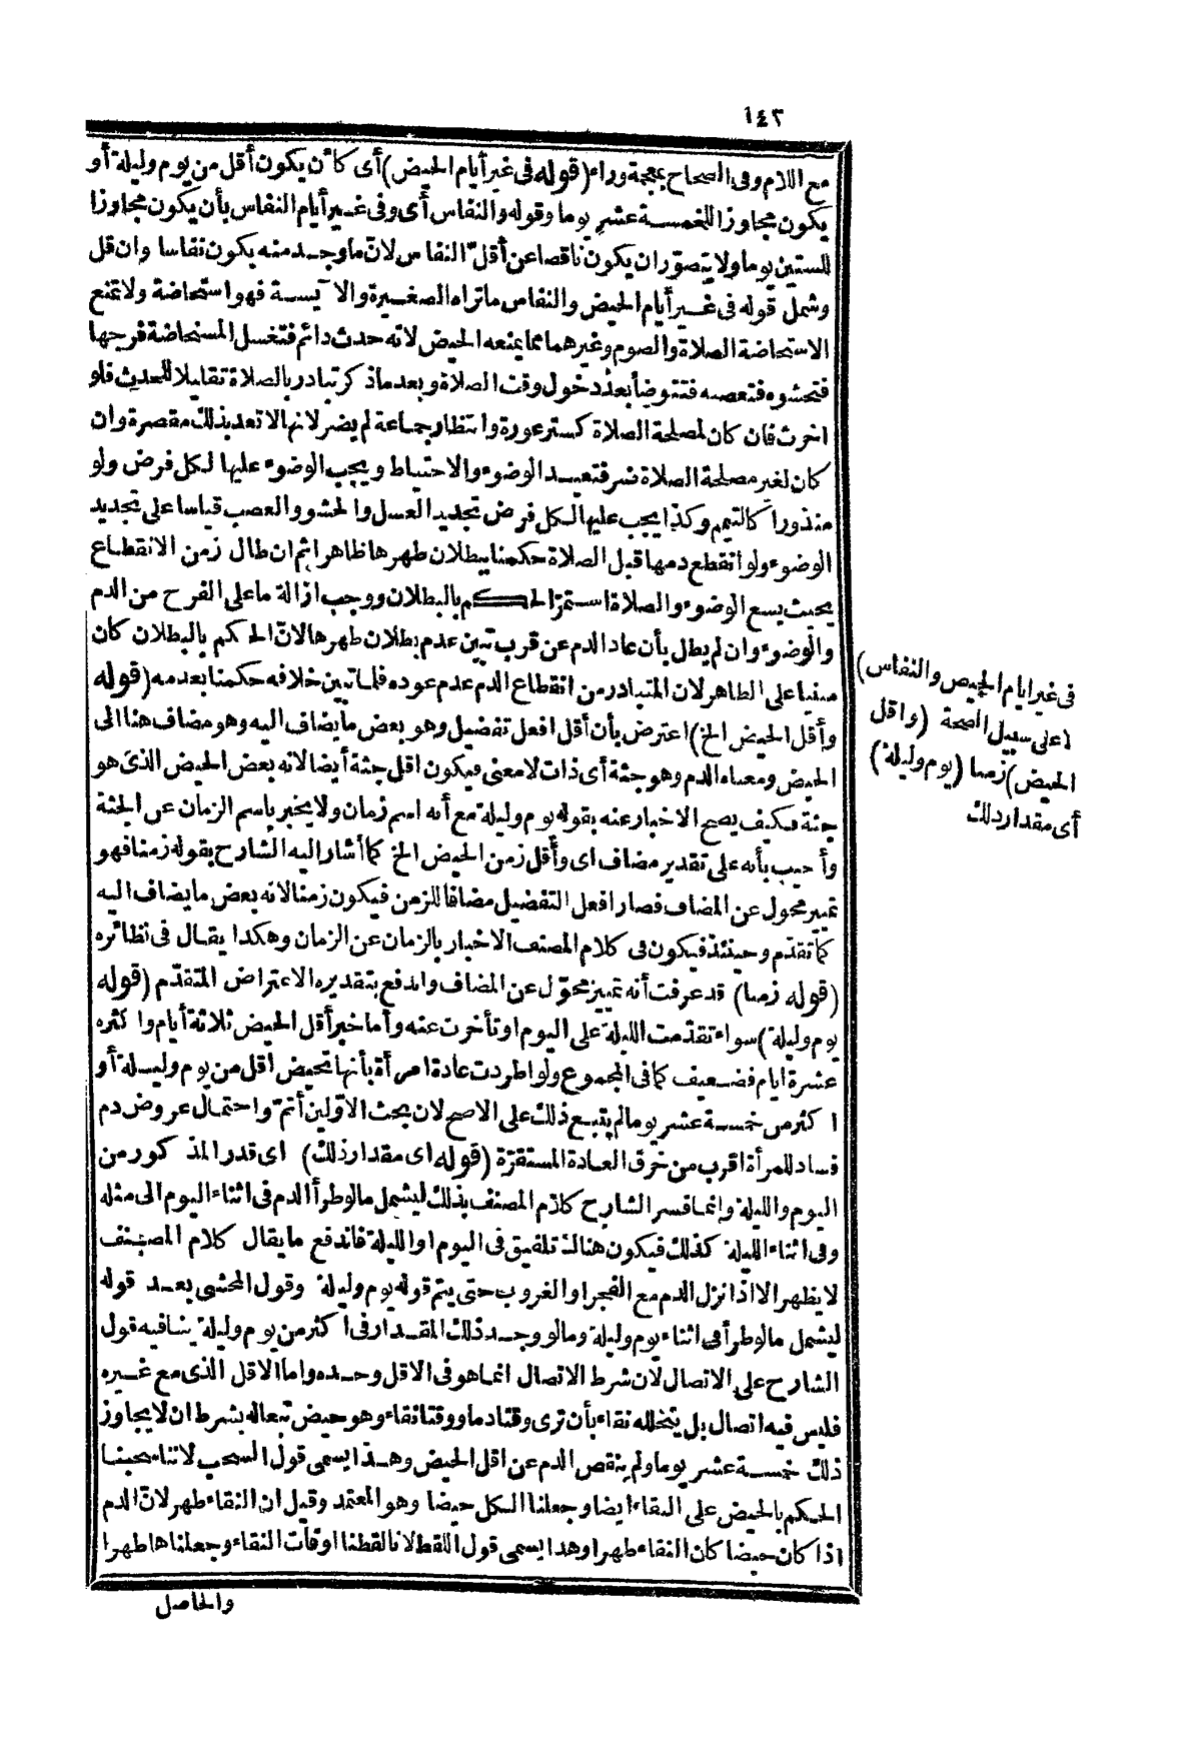 ١٤٣
مع اللام وفى الصحاح بمعجمة وراء (قوله فى غير أيام الحيض) أى كأن يكون أقل من يوم وليلة أو
يكون مجاوزا للخمسة عشر يوما وقوله والنفاس أى وفى غير أيام النفاس بأن يكون مجاوزا
للستين يوما ولا يتصوّر ان يكون ناقصا عن أقلّ النفاس لانّ ما وجد منه يكون نفاسا وان قل
وشمل قوله فى غير أيام الحيض والنفاس ما تراه الصغيرة والا آيسة فهو استحاضة ولا تمنع
الاستحاضة الصلاة والصوم وغيرهما مما يمنعه الحيض لانه حدث دائم فتغسل المستحاضة فرجها
فتحشوه فتعصبه فتتوضأ بعد دخول وقت الصلاة وبعد ماذكر تبادر بالصلاة تقليلا للحدث فلو
اخرت فان كان لمصلحة الصلاة كستر عورة وانتظار جماعة لم يضر لانها لا تعد بذلك مقصرة وان
كان لغير مصلحة الصلاة ضر فتعيد الوضوء والاحتياط ويجب الوضوء عليها لكل فرض ولو
منذورا كالتيمم وكذا يجب عليها لكل فرض تجديد الغسل والحشو والعصب قياسا على تجديد
الوضوء ولو انقطع دمها قبل الصلاة حكمنا ببطلان طهرها ظاهرا ثم ان طال زمن الانقطاع
بحيث يسع الوضوء والصلاة استمرّ الحكم بالبطلان ووجب ازالة ما على الفرج من الدم
والوضوء وان لم يطل بأن عاد الدم عن قرب تبين عدم بطلان طهرها لانّ الحكم بالبطلان كان
مبنيا على الظاهر لان المتبادر من انقطاع الدم عدم عوده فلما تبين خلافه حكمنا بعدمه (قوله
وأقل الحيض الخ) اعترض بأن أقل افعل تفضيل وهو بعض ما يضاف اليه وهو مضاف هنا الى
الحيض ومعناه الدم وهو جثة أى ذات لا معنى فيكون اقل جثة أيضا لانه بعض الحيض الذى هو
جثة فكيف يصح الاخبار عنه بقوله يوم وليلة مع أنه اسم زمان ولا يخبر باسم الزمان عن الجثة
وأجيب بأنه على تقدير مضاف اى وأقل زمن الحيض الخ كما أشار اليه الشارح بقوله زمنا فهو
تمييز محول عن المضاف فصار افعل التفضيل مضافا للزمن فيكون زمنا لانه بعض ما يضاف اليه
كما تقدّم وحينئذ فيكون فى كلام المصنف الاخبار بالزمان عن الزمان وهكذا يقال فى نظائره
(قوله زمنا) قد عرفت أنه تمييز محوّل عن المضاف واندفع بتقديره الاعتراض المتقدّم (قوله
يوم وليلة) سواء تقدّمت الليلة على اليوم او تأخرت عنه وأما خبر أقل الحيض ثلاثة أيام واكثره
عشرة ايام فضعيف كما فى المجموع ولو اطردت عادة امرأة بأنها تحيض اقل من يوم وليلة أو
اكثر من خمسة عشر يوما لم يتبع ذلك على الاصح لان بحث الاوّلين أتمّ واحتمال عروض دم
فساد للمرأة اقرب من خرق العادة المستقرّة (قوله اى مقدار ذلك) اى قدر المذكور من
اليوم والليلة وانما فسر الشارح كلام المصنف بذلك ليشمل ما لو طرأ الدم فى اثناء اليوم الى مثله
وفى اثناء الليلة كذلك فيكون هنالك تلفيق فى اليوم او الليلة فاندفع ما يقال كلام المصنف
لا يظهر الا اذا نزل الدم مع الفجر او الغروب حتى يتم قوله يوم وليلة وقول المحشى بعد قوله
ليشمل ما لو طرأ فى اثناء يوم وليلة وما لو وجد ذلك المقدار فى اكثر من يوم وليلة ينافيه قول
الشارح على الاتصال لان شرط الاتصال انما هو فى الاقل وحده واما الاقل الذى مع غيره
فليس فيه اتصال بل يتخلله نقاء بأن ترى وقتا دما ووقتا نقاء وهو حيض تبعا له بشرط ان لا يجاوز
ذلك خمسة عشر يوما ولم ينقص الدم عن اقل الحيض وهذا يسمى قول السحب لاننا سحبنا
الحكم بالحيض على النقاء ايضا وجعلنا الكل حيضا وهو المعتمد وقيل ان النقاء طهر لانّ الدم
اذا كان حيضا كان النقاء طهرا وهذا يسمى قول اللقط لانا لقطنا اوقات النقاء وجعلناها طهرا
والحاصل
فى غير ايام الحيض والنفاس)
لا على سبيل الصحة (واقل
الحيض) زمنا (يوم وليلة)
أى مقدار ذلك